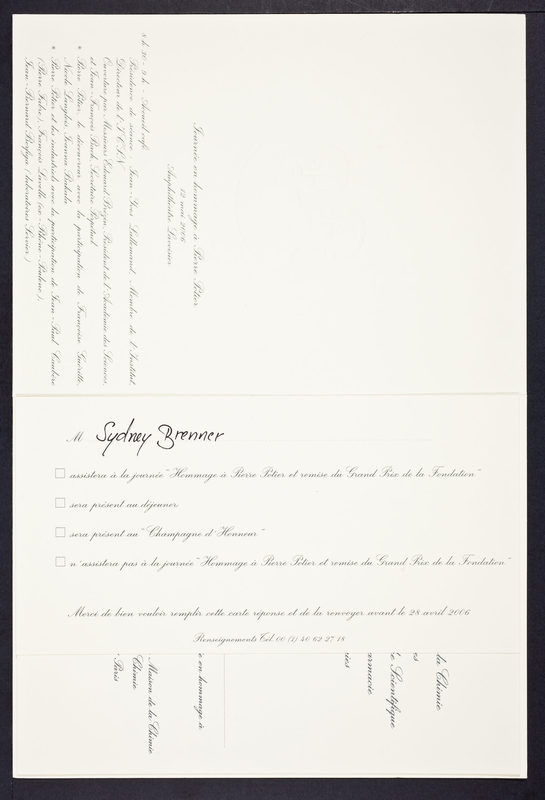 Journée en hommage à Pierre Potier
12 mai 2006
Amphithéâtre Lavoisier
8 h 30 - 9 h - Accueil café
Présidence de séance : Jean-Yves Lallemand, Membre de l'Institut,
Directeur de l'I.C.S.N.
Ouverture par Messieurs Edouard Brézin, Président de l'Académie des Sciences,
et Jean-François Bach, Secrétaire Perpétuel
* Pierre Potier, le découvreur avec la participation de Françoise Guéritte,
Nicole Langlois, Joanna Bakala
* Pierre Potier et les industriels avec la participation de Jean-Paul Coubère
(Pierre Fabre), François Lavelle (ex-Rhône-Poulenc),
Jean-Bernard (laboratoires Servier)
M Sydney Brenner
assistera à la journée "Hommage à Pierre Potier et remise du Grand Prix de la Fondation"
sera présent au déjeuner
sera présent au "Champagne d'Honneur"
n'assistera pas à la journée "Hommage à Pierre Potier et remise du Grand Prix de la Fondation"
Merci de bien vouloir remplir cette carte réponse et de la renvoyer avant le 28 avril 2006
Renseignements Tél. 00 (1) 40 62 27 18
la Chimie
es
e Scientifique
armacie
ies
e en hommage à
Maison de la Chimie
Chimie
Paris